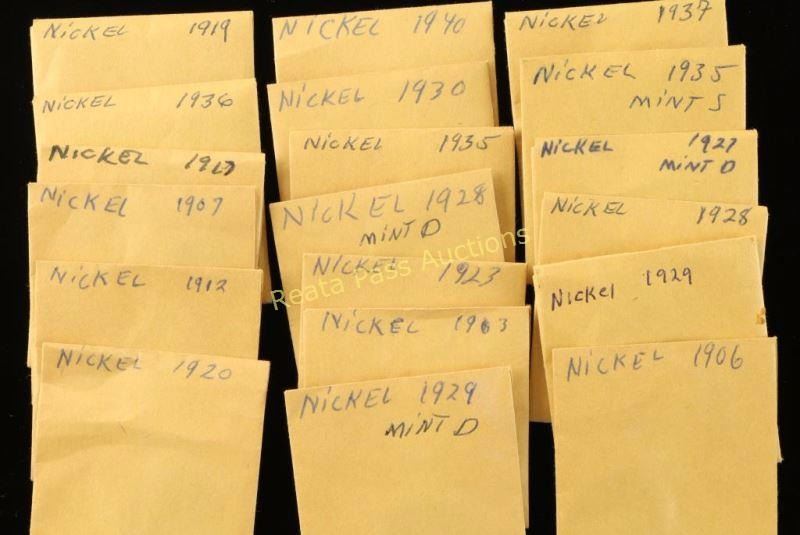 NICKEL 1919
NICKEL 1936
NICKEL
NICKEL 1907
NICKEL 1912
NICKEL 1920
NICKEL 1940
NICKEL 1930
NICKEL 1935
NICKEL 1928
MINT D
NICKEL 1923
NICKEL
NICKEL 1929
MINT D
NICKEL 1937
NICKEL 1935
MINT S
NICKEL 1927
MINT D
NICKEL 1928
NICKEL 1929
NICKEL 1906
Reata Pass Auctions